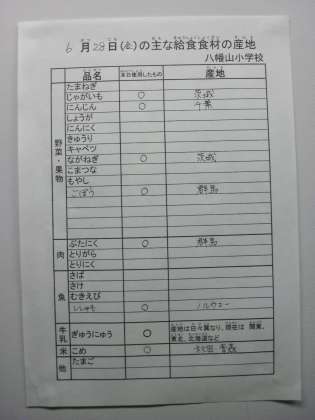 6月28日(金)の主な給食食材の産地
八幡山小学校
品名 本日使用したもの 産地
野菜・果物
たまねぎ
じゃがいも ○ 茨城
にんじん ○ 千葉
しょうが
にんにく
きゅうり
キャベツ
ながねぎ ○ 茨城
こまつな
もやし
ごぼう ○ 群馬
肉
ぶたにく ○ 群馬
とりがら
とりにく
魚
さば
さけ
むきえび
ししゃも ○ ノルウェー
牛乳 ぎゅうにゅう ○ 産地は日々異なり、現在は 関東、
東北、北海道など
米 こめ ○ 秋田・青森
他 たまご